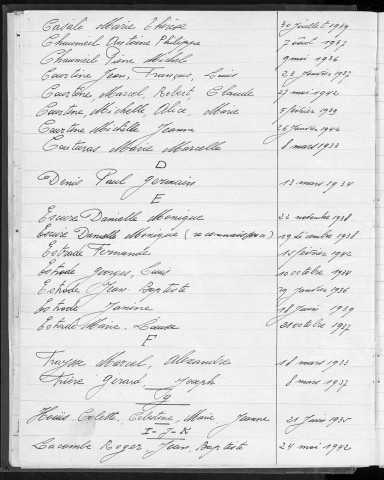 Casali Marie Thérèse 30 juillet 1939
Chaumeil Antoine Philippe 7 août 1932
Chaumeil Pierre Michel 9 mai 1936
Courtine Jean, François, Louis 23 janvier 1932
Courtine, Marcel, Robert, Claude 27 mai 1942
Courtine, Michelle, Alice, Marie 5 février 1939
Courtine Michelle Jeanne 26 janvier 1942
Couturas Marie Marcelle 8 mars 1933
D
Denis Paul Germain 13 mars 1934
E
Escure Danielle Monique 22 novembre 1938
Escure Danielle Monique (reconnaissance) 19 décembre 1938
Estrade Fernande 12 février 1942
Estrade Georges, Louis 10 octobre 1934
Estrade Jean Baptiste 29 janvier 1936
Estrade Janine 18 juin 1939
Estrade Marie 21 octobre 1937
F
Marcel, Alexandre 18 mars 1933
Frière Gérard, Joseph 8 mars 1932
g
Colette, Marie Jeanne 21 juin 1935
I - J - K
Lacombe Roger, Jean, Baptiste 24 mai 1942